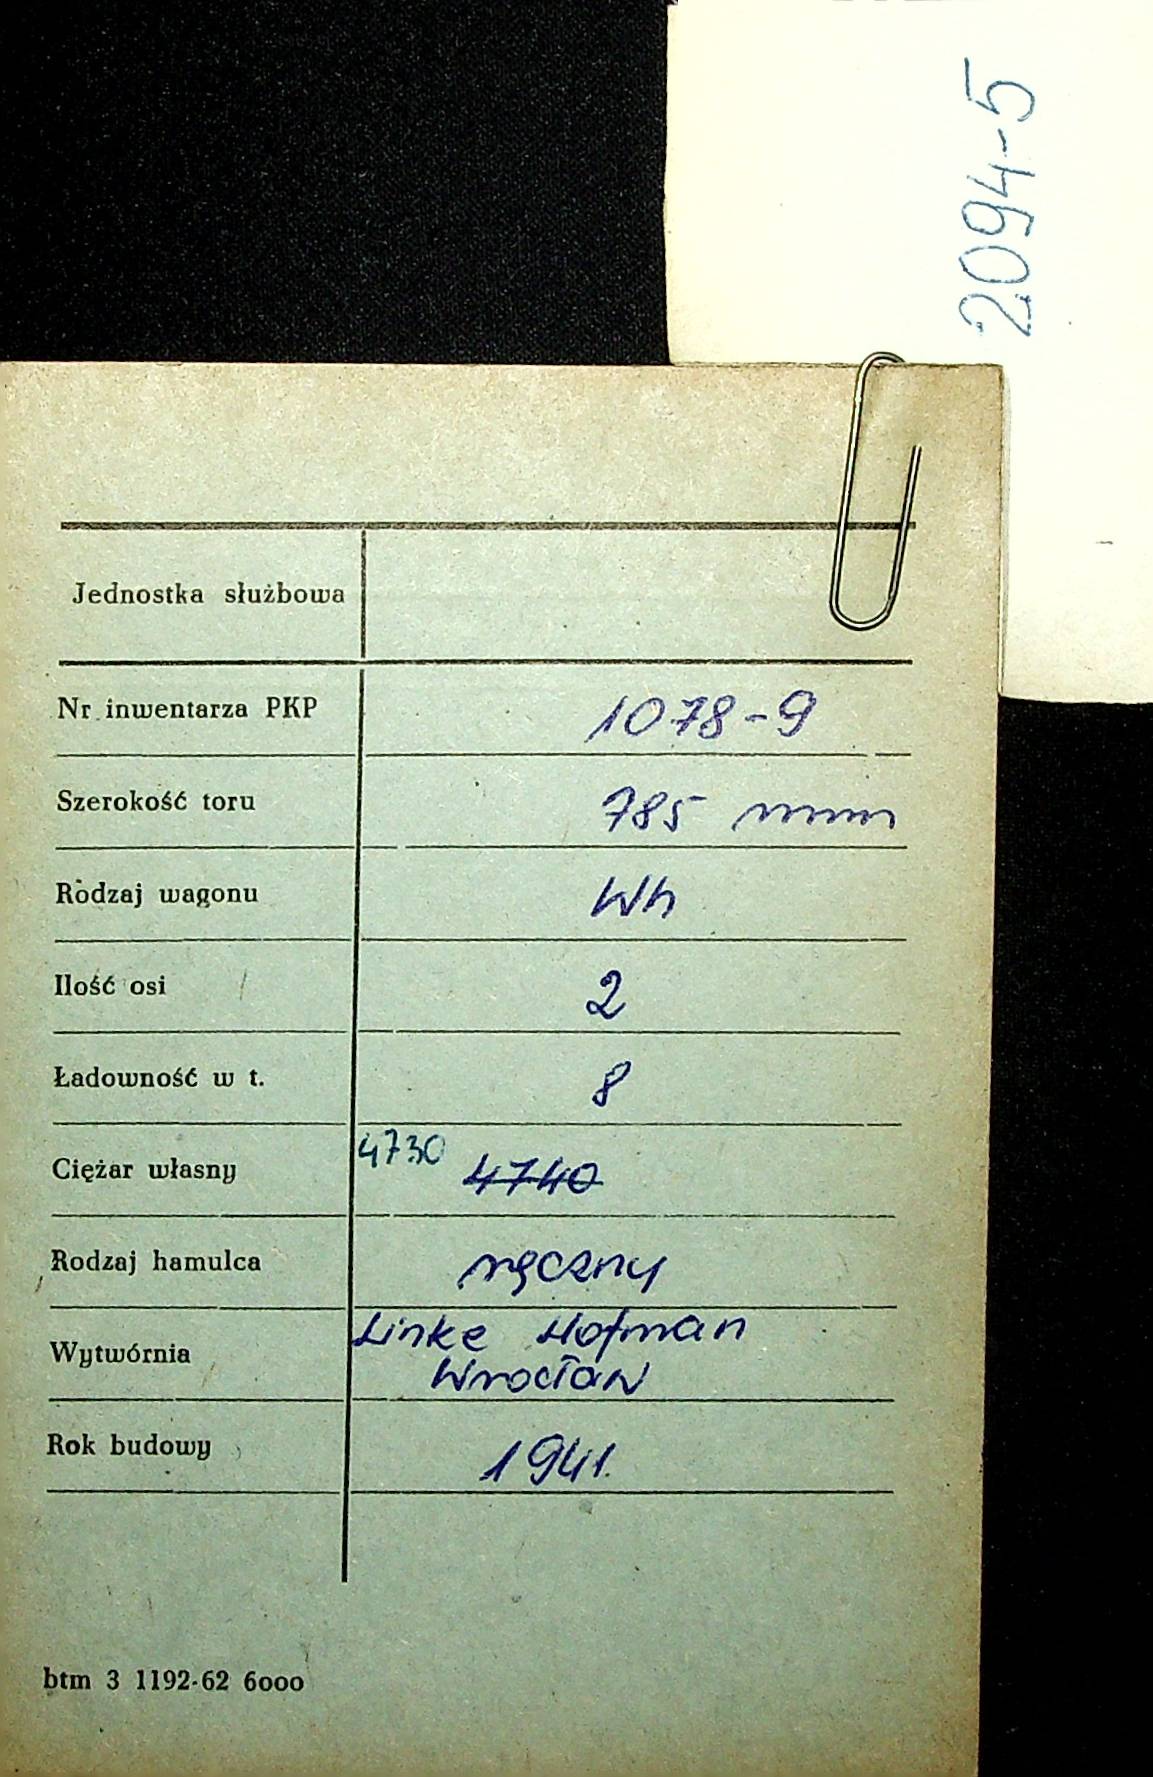 2094-5
Jednostka służbowa
Nr inwentarza PKP 1078-9
Szerokość toru 785 mm
Rodzaj wagonu Wh
Ilość osi 2
Ładowność w t. 8
Ciężar własny 4730 4740
Rodzaj hamulca ręczny
Wytwórnia Linke Hofman
Wrocław
Rok budowy 1941.
btm 3 1192-62 6000